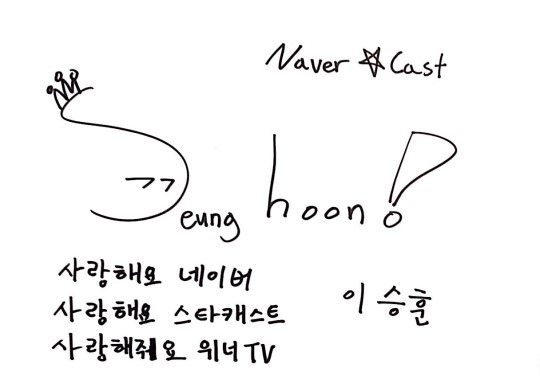 Naver ☆ Cast
Seung hoon!
사랑해요 네이버
사랑해요 스타캐스트
사랑해줘요 위너TV
이승훈